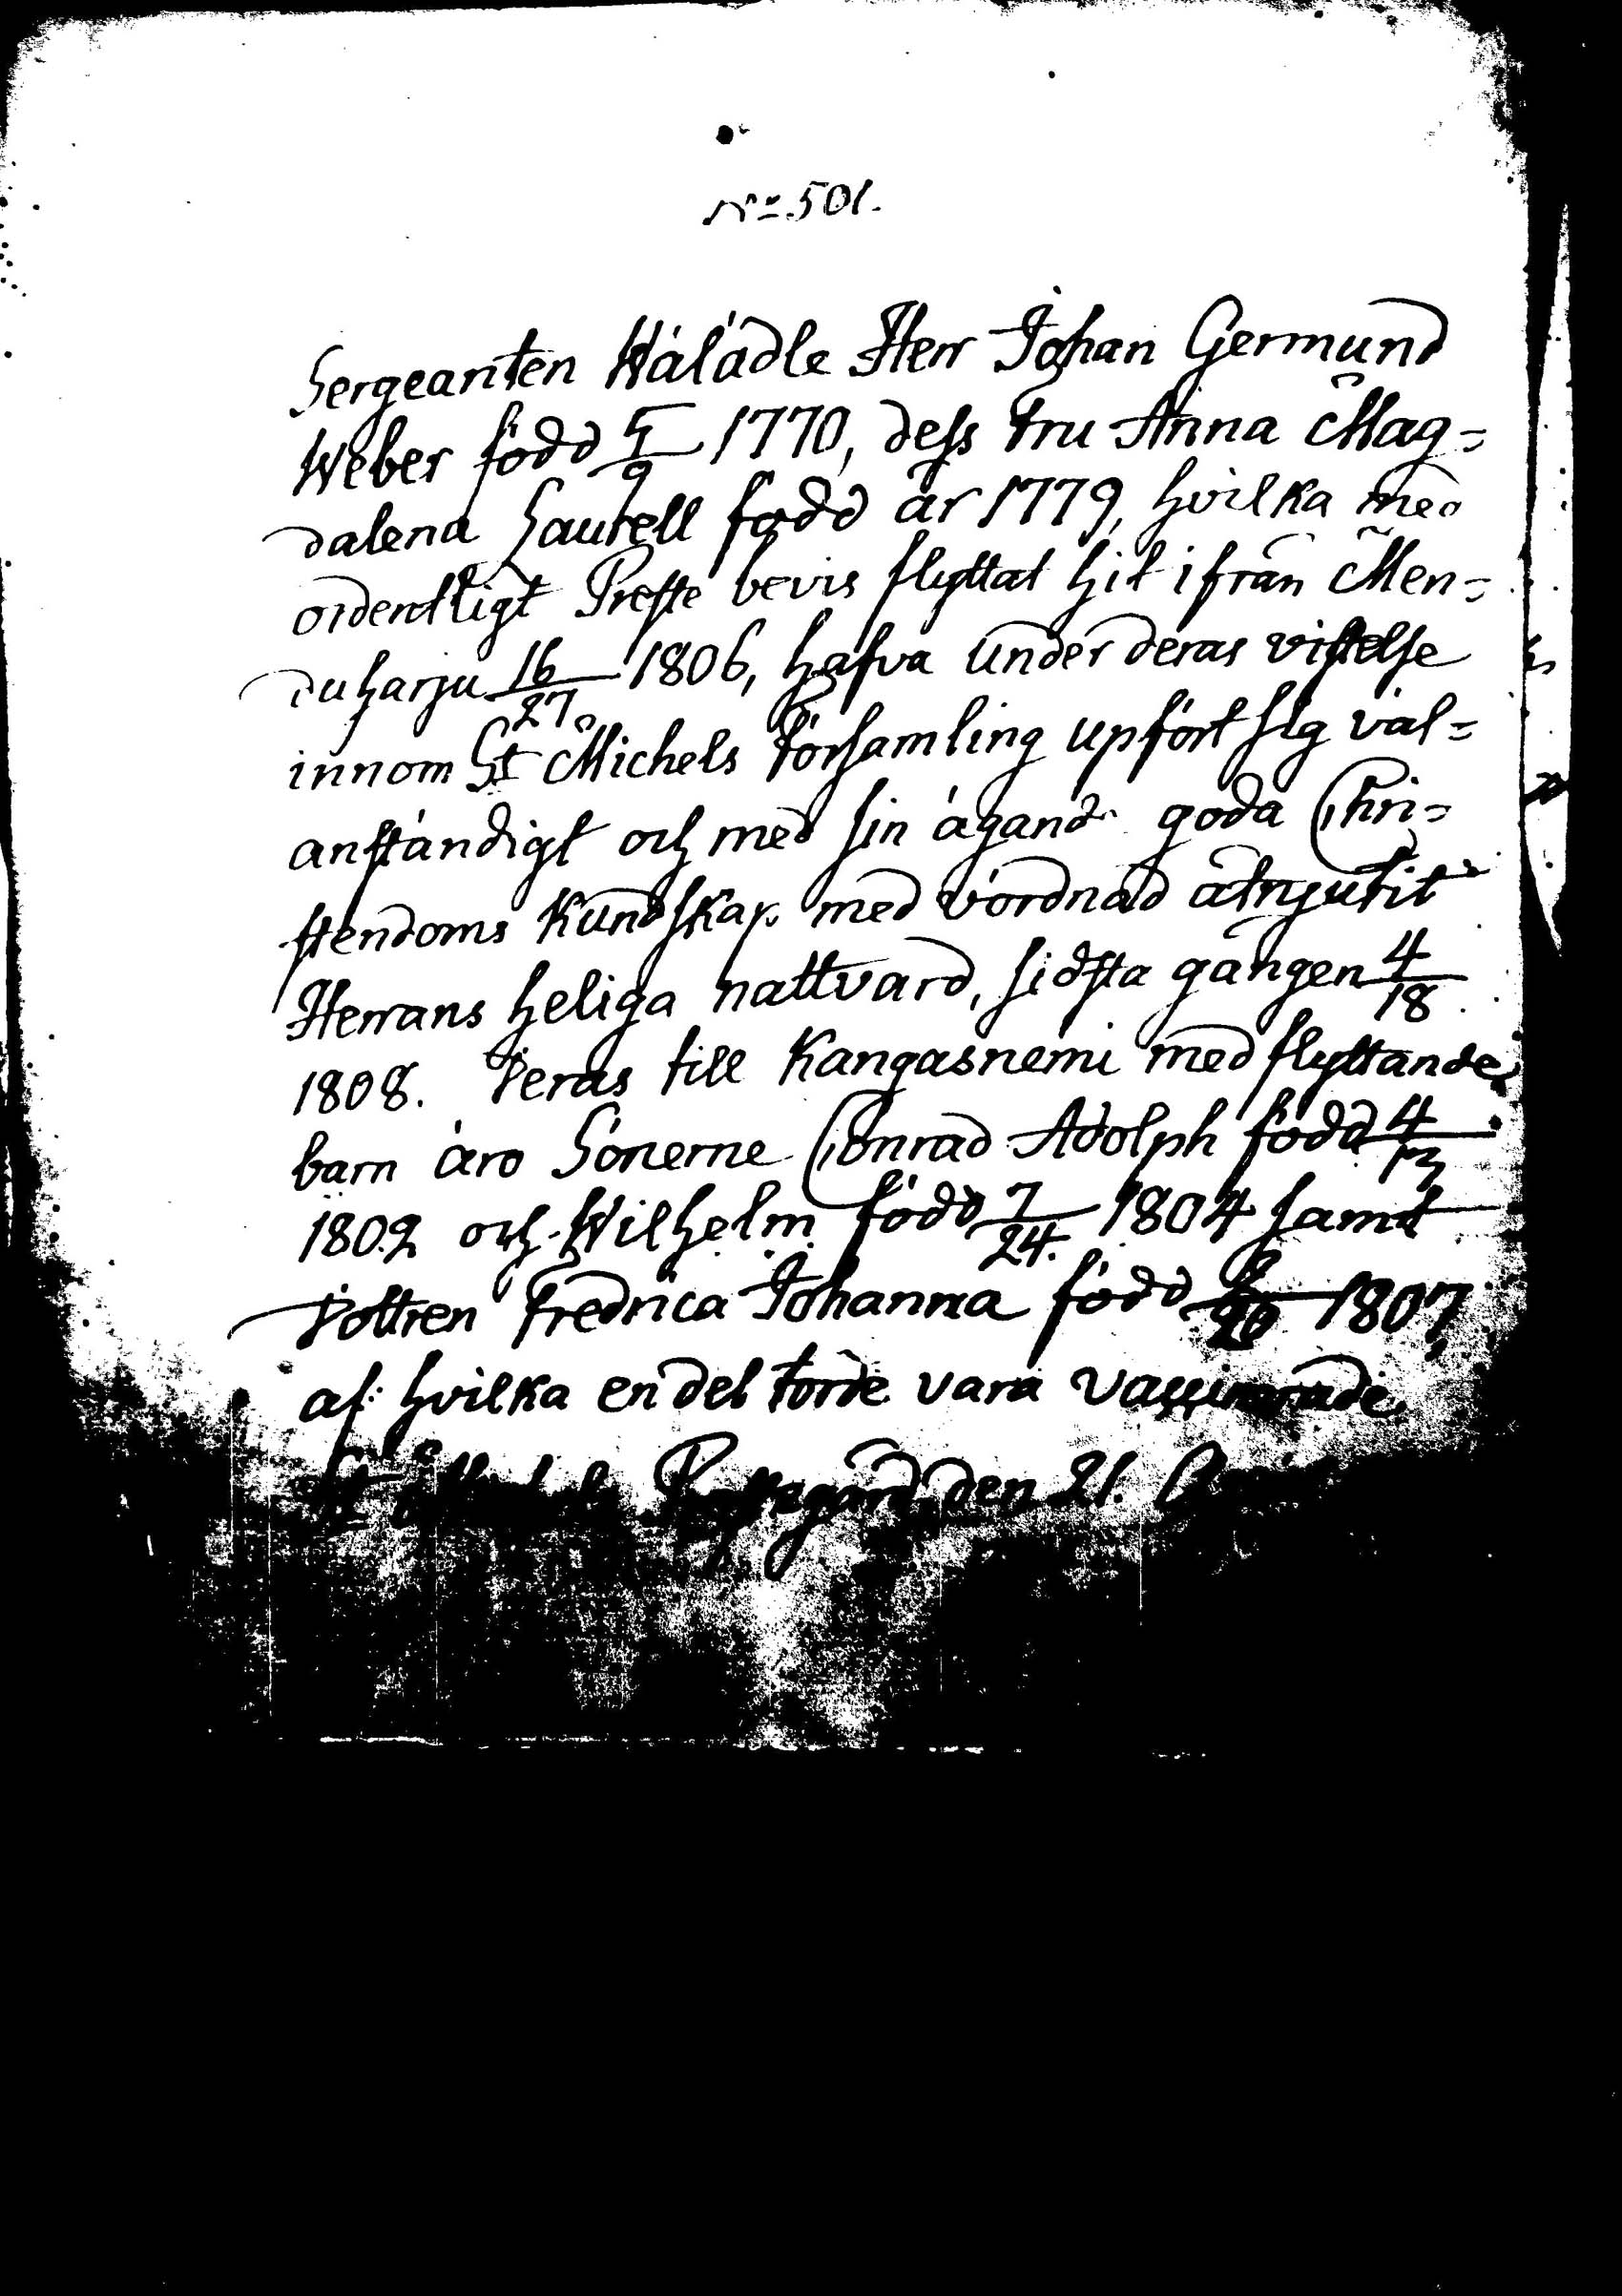 No. 501.
Sergeanten Wälädle Herr Johan Germund
Weber född 5/9 1770, dess Fru Anna Mag=
dalena Saurell född år 1779, hvilka med
ordentligt Preste bevis flyttat hit ifrån Men=
duharju 16/27 1806, hafva under deras vistelse
innom St Michels Församling upfört sig väl=
anständigt och med sin ägande goda Chri=
stendoms kundskap med vördnad åtnjutit
Herrans heliga nattvard, sidsta gången 4/18
1808. Deras till Kangasnemi med flyttande
barn äro Sönerne Conrad Adolph född 4/13
1802 och Wilhelm född 7/24. 1804 samt
Dottren Fredrica Johanna född 1807,
af hvilka en del torde vara vaccinerade.
Prestegård den 21.